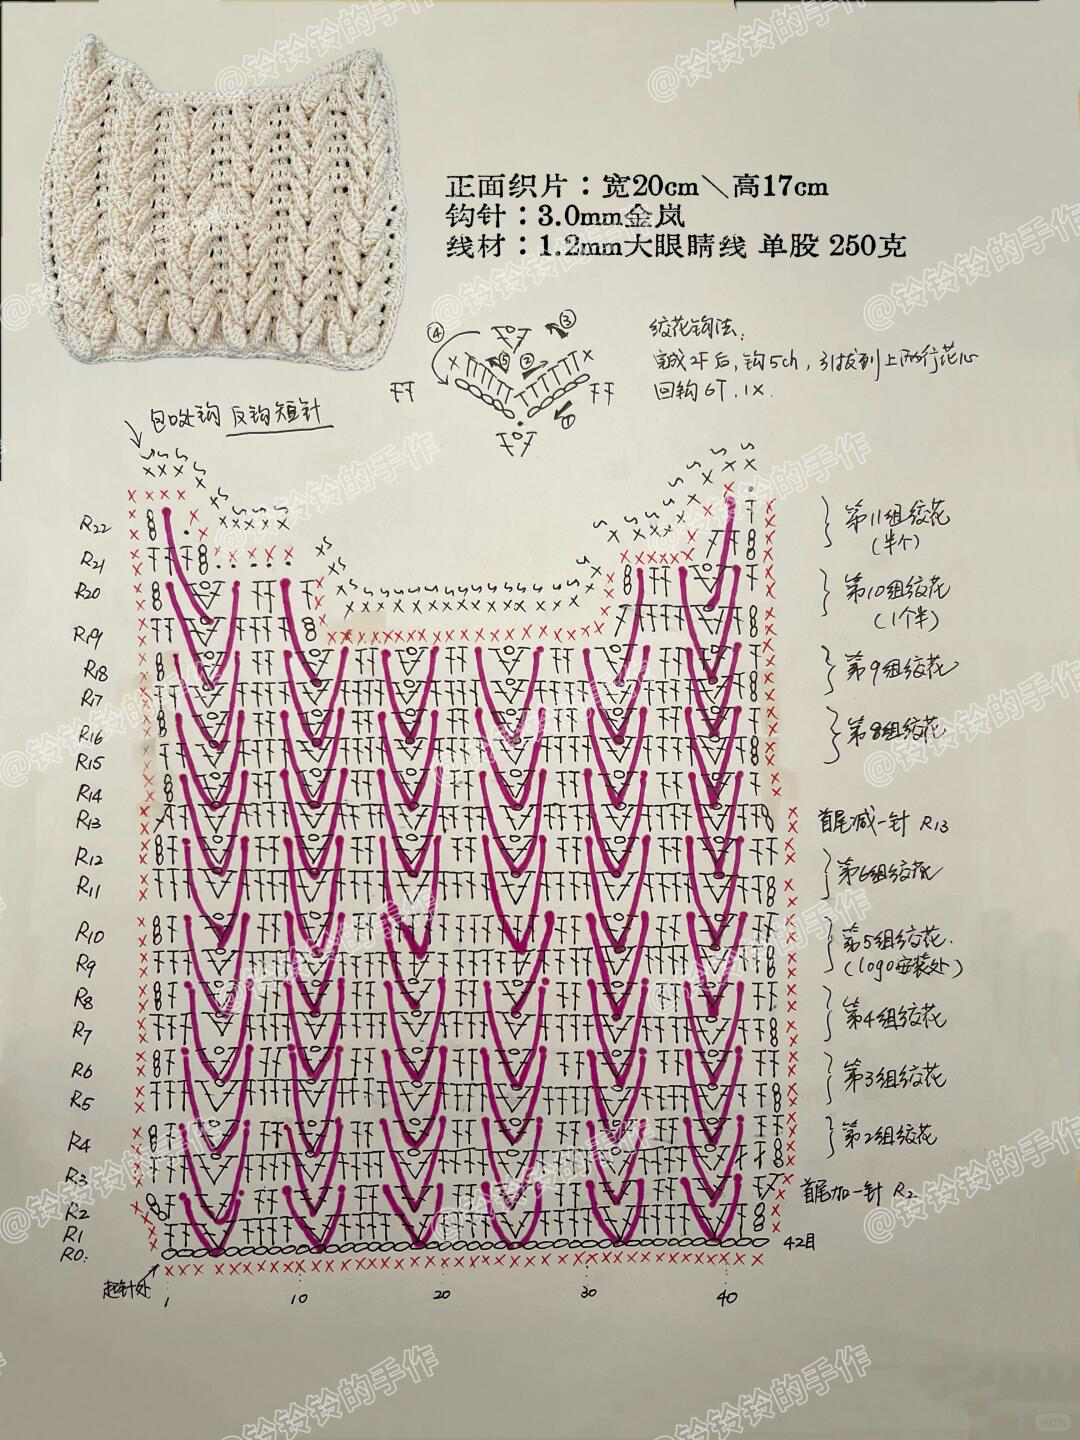 @铃铃铃的手作
正面织片：宽20cm＼高17cm
钩针：3.0mm金岚
线材：1.2mm大眼睛线 单股 250克
绞花钩法：
完成2F后，钩5ch，引拔到上两行花心
回钩6T，1X.
④
③
⑤
②
①
包口处钩 反钩短针
R22
R21
R20
R19
R18
R17
R16
R15
R14
R13
R12
R11
R10
R9
R8
R7
R6
R5
R4
R3
R2
R1
R0.
第11组绞花
（半个）
第10组绞花
（1个半）
第9组绞花
第8组绞花
首尾减一针 R13
第6组绞花
第5组绞花.
（logo安装处）
第4组绞花
第3组绞花
第2组绞花
首尾加一针 R2
42目
起针处
1 10 20 30 40
小红书